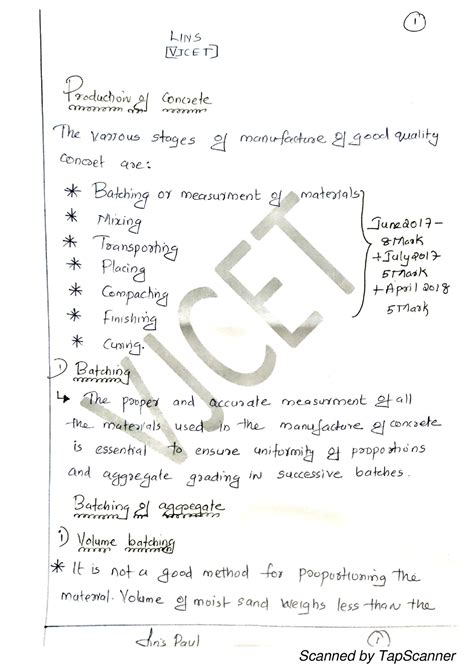 1
LINS
[VJCET]
Production of Concrete
The various stages of manufacture of good quality
concret are:
* Batching or measurment of materials
* Mixing
* Transporting
* Placing
* Compacting
* Finishing
* Curing.
June 2017 -
8 Mark
+ July 2017
5 Mark
+ April 2018
5 Mark
VJCET
1) Batching
↳ The proper and accurate measurment of all
the materials used in the manufacture of concrete
is essential to ensure uniformity of propotions
and aggregate grading in successive batches.
Batching of aggregate
i) Volume batching
* It is not a good method for propotioning the
material. Volume of moist sand weighs less than the
Jins Paul
1
Scanned by TapScanner